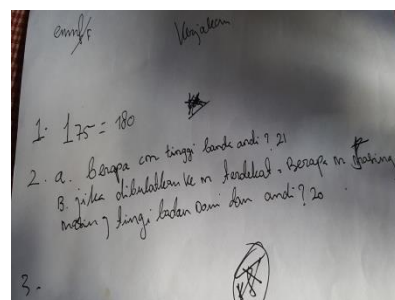 Kerjakan
1. 175 = 180
2. a. berapa cm tinggi banda andi? 21
B. jika dibulatkan ke m terdekat. Berapa m masing
masing tinggi badan Doni dan andi? 20
3.